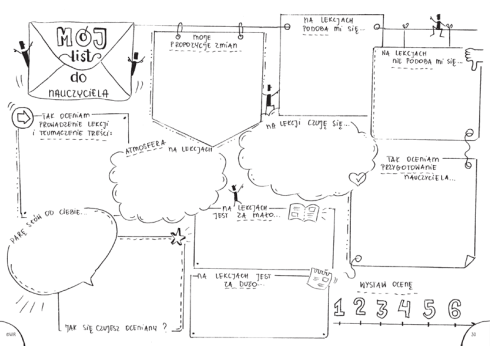 MÓJ
list
do
NAUCZYCIELA
MOJE
PROPOZYCJE ZMIAN
NA LEKCJACH
PODOBA MI SIĘ...
NA LEKCJACH
NIE PODOBA MI SIĘ...
TAK OCENIAM
PROWADZENIE LEKCJI
I TŁUMACZENIE TREŚCI:
ATMOSFERA NA LEKCJACH
NA LEKCJI CZUJĘ SIĘ...
TAK OCENIAM
PRZYGOTOWANIE
NAUCZYCIELA...
PARĘ SŁÓW OD CIEBIE...
NA LEKCJACH
JEST ZA MAŁO...
NA LEKCJACH JEST
ZA DUŻO...
JAK SIĘ CZUJESZ OCENIANY ?
WYSTAW OCENĘ
1 2 3 4 5 6